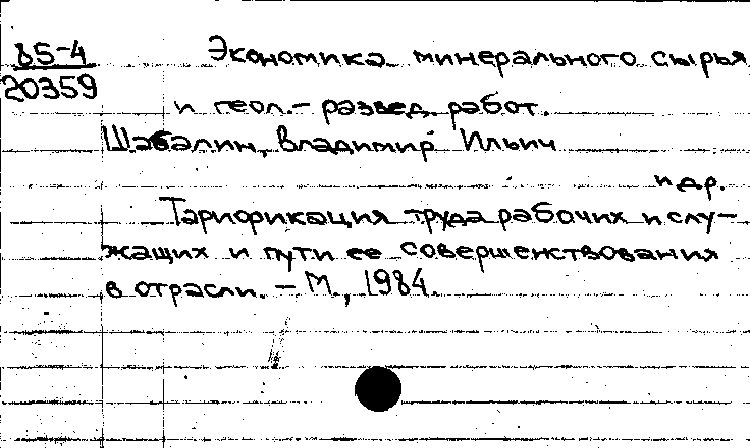 85-4
20359
Экономика минерального сырья
и геол.- развед. работ.
Шабалин, Владимир Ильич
и др.
Тарификация труда рабочих и слу-
жащих и пути ее совершенствования
в отрасли. - М., 1984.